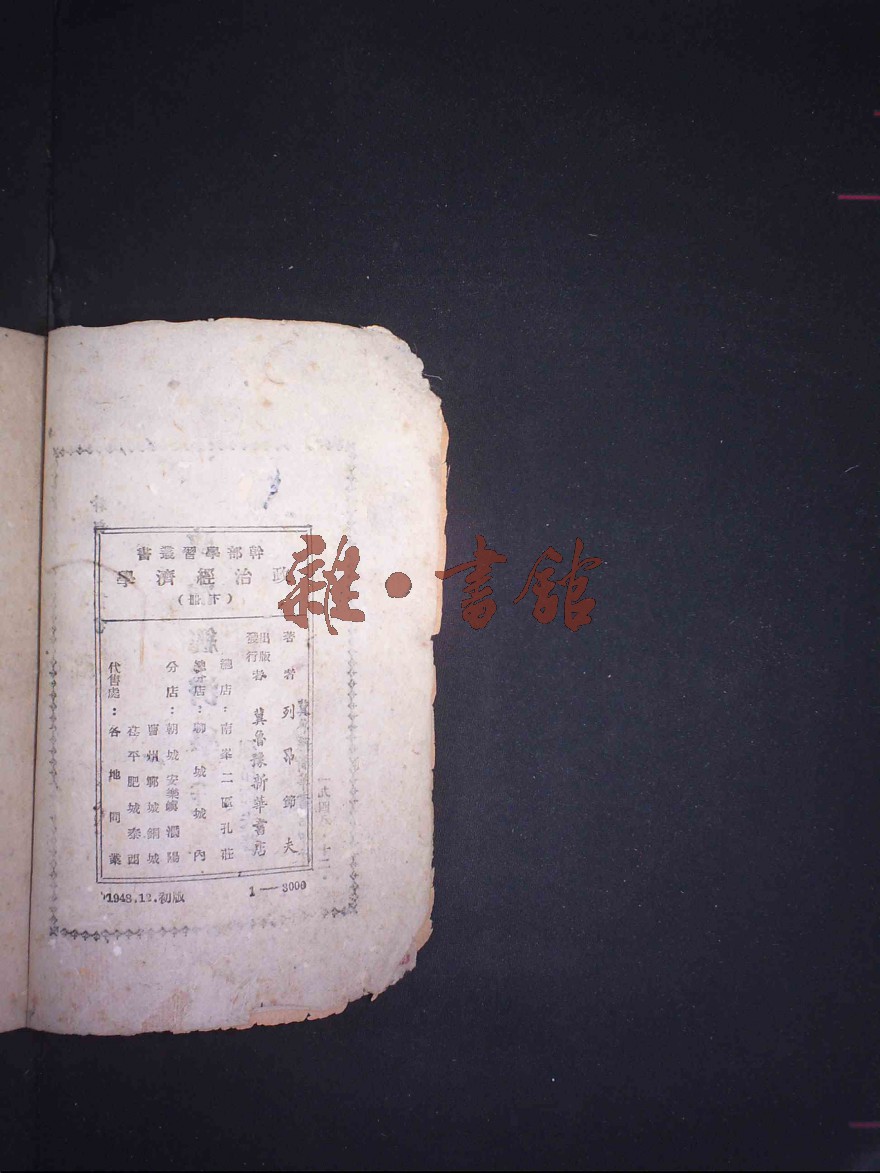 幹部學習叢書
政治經濟學
(下冊)
著者 列昂節夫
出版
發行者 冀魯豫新華書店
總店：南峯二區孔莊
總分店：聊城城內
分店：朝城 安樂鎮 濮陽
曹州 鄆城 銅城
茌平 肥城 泰西
代售處：各地同業
1948.12.初版
1—3000
雜·書館